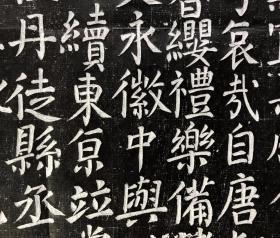 哀哉自唐
缨禮樂備
永徽中與
續東京竝
丹徒縣丞